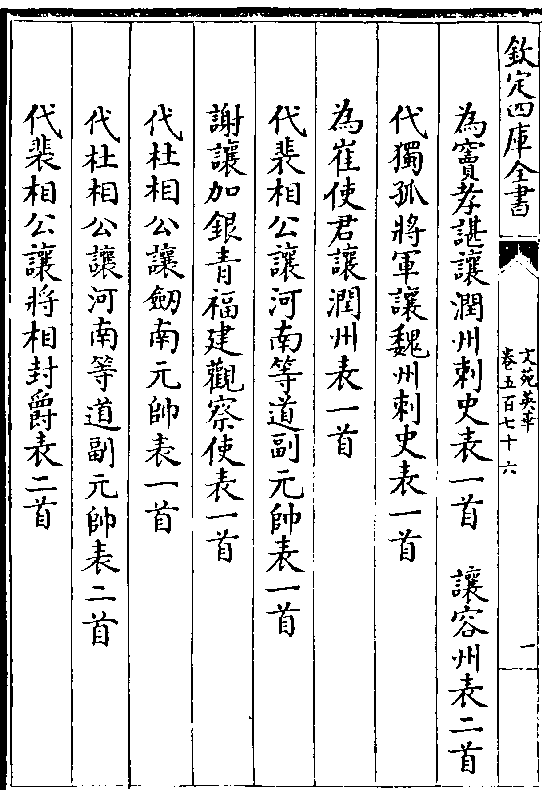 欽定四庫全書
文苑英華
卷五百七十六
一
為竇孝諶讓潤州刺史表一首 讓容州表二首
代獨孤將軍讓魏州刺史表一首
為崔使君讓潤州表一首
代裴相公讓河南等道副元帥表一首
謝讓加銀青福建觀察使表一首
代杜相公讓劒南元帥表一首
代杜相公讓河南等道副元帥表二首
代裴相公讓將相封爵表二首